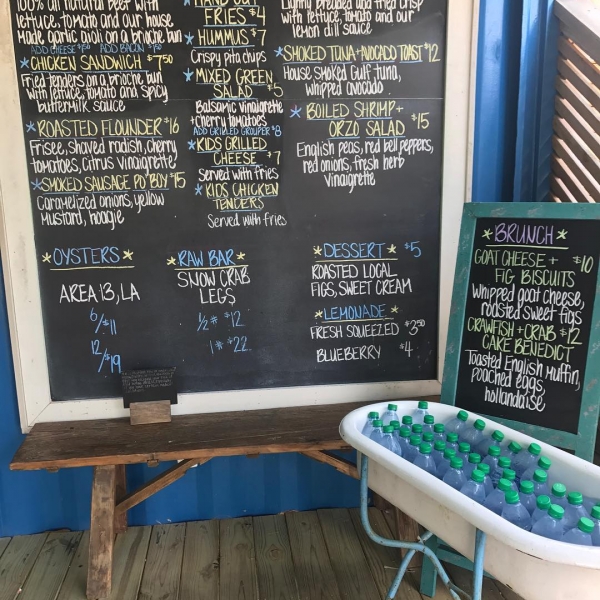 100% all natural beef with
lettuce, tomato and our house
made garlic aioli on a brioche bun
ADD CHEESE $1.50 ADD BACON $1.50
* CHICKEN SANDWICH $7.50
Fried tenders on a brioche bun
with lettuce, tomato and spicy
buttermilk sauce
* ROASTED FLOUNDER $16
Frisee, shaved radish, cherry
tomatoes, citrus vinaigrette
* SMOKED SAUSAGE PO'BOY $15
Caramelized onions, yellow
mustard, hoagie
* HAND CUT
FRIES $4
* HUMMUS $7
Crispy pita chips
* MIXED GREEN
SALAD $5
Balsamic vinaigrette
+ cherry tomatoes
ADD GRILLED GROUPER $8
* KIDS GRILLED
CHEESE $7
Served with fries
* KIDS CHICKEN
TENDERS
Served with fries
Lightly breaded and fried crisp
with lettuce, tomato and our
lemon dill sauce
* SMOKED TUNA + AVOCADO TOAST $12
House smoked Gulf tuna,
whipped avocado
* BOILED SHRIMP +
ORZO SALAD $15
English peas, red bell peppers,
red onions, fresh herb
vinaigrette
* OYSTERS *
AREA 13, LA
6/$11
12/$19
* RAW BAR *
SNOW CRAB
LEGS
1/2# $12
1# $22
* DESSERT * $5
ROASTED LOCAL
FIGS, SWEET CREAM
* LEMONADE *
FRESH SQUEEZED $3.50
BLUEBERRY $4
* BRUNCH *
GOAT CHEESE + $10
FIG BISCUITS
Whipped goat cheese,
roasted sweet figs
CRAWFISH + CRAB $12
CAKE BENEDICT
Toasted English Muffin,
poached eggs,
hollandaise